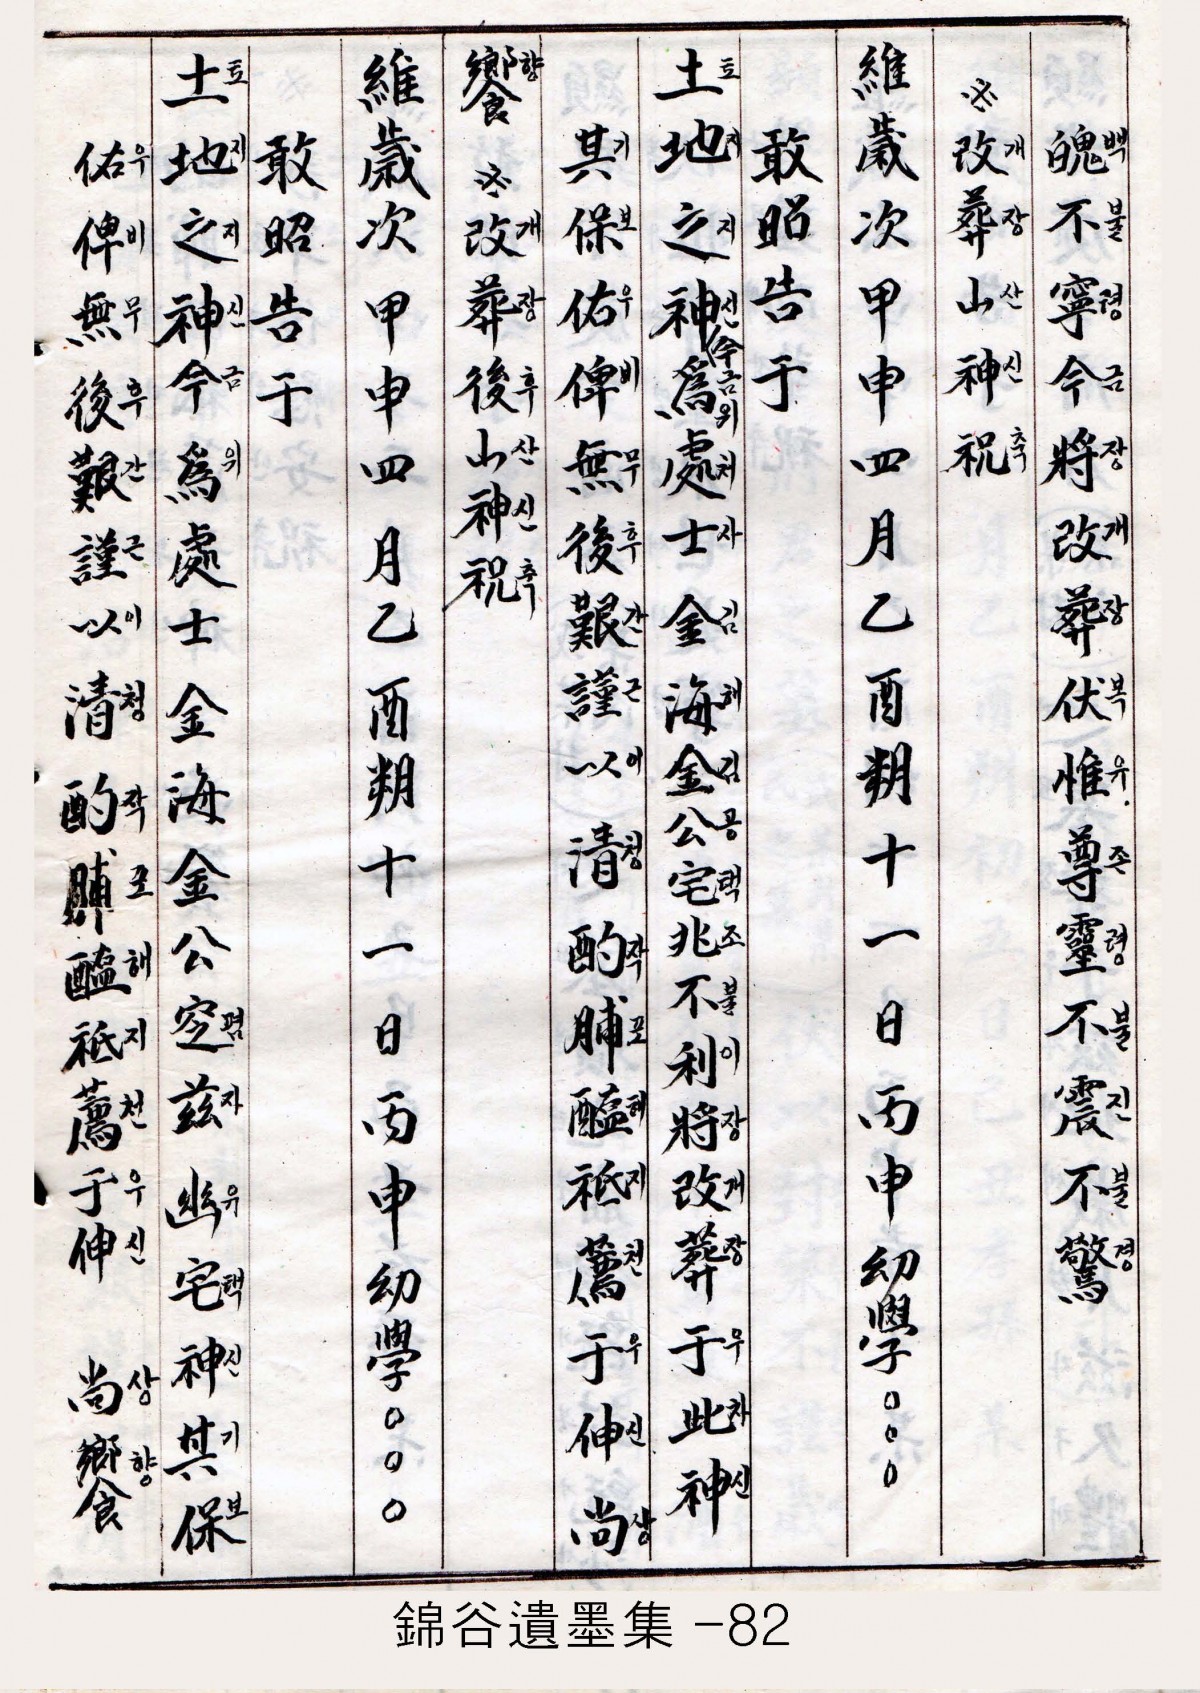 魄不寧今將改葬伏惟尊靈不震不驚
백불령금장개장복유존령불진불경
※改葬山神祝
개장산신축
維歲次甲申四月乙酉朔十一日丙申幼學○○○
敢昭告于
土地之神今爲處士金海金公宅兆不利將改葬于此神
토지지신금위처사김해김공택조불이장개장우차신
其保佑俾無後艱謹以清酌脯醢祗薦于伸 尚
기보우비무후간근이청작포해지천우신 상
饗 ※改葬後山神祝
향 개장후산신축
維歲次甲申四月乙酉朔十一日丙申幼學○○○
敢昭告于
土地之神今爲處士金海金公窆茲幽宅神其保
토지지신금위 폄자유택신기보
佑俾無後艱謹以清酌脯醢祗薦于伸 尚饗
우비무후간근이청작포해지천우신 상향
錦谷遺墨集 -82